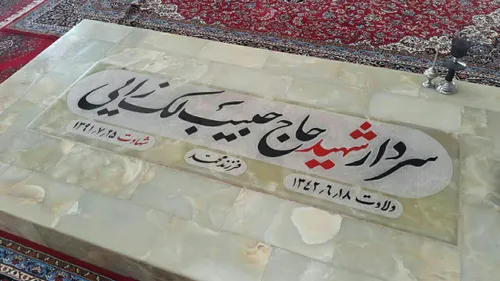 سردار شهید حاج حبیب لک زایی
فرزند محمد
ولادت ۱۳۴۲٫۶٫۱۸
شهادت ۱۳۹۱٫۷٫۲۵